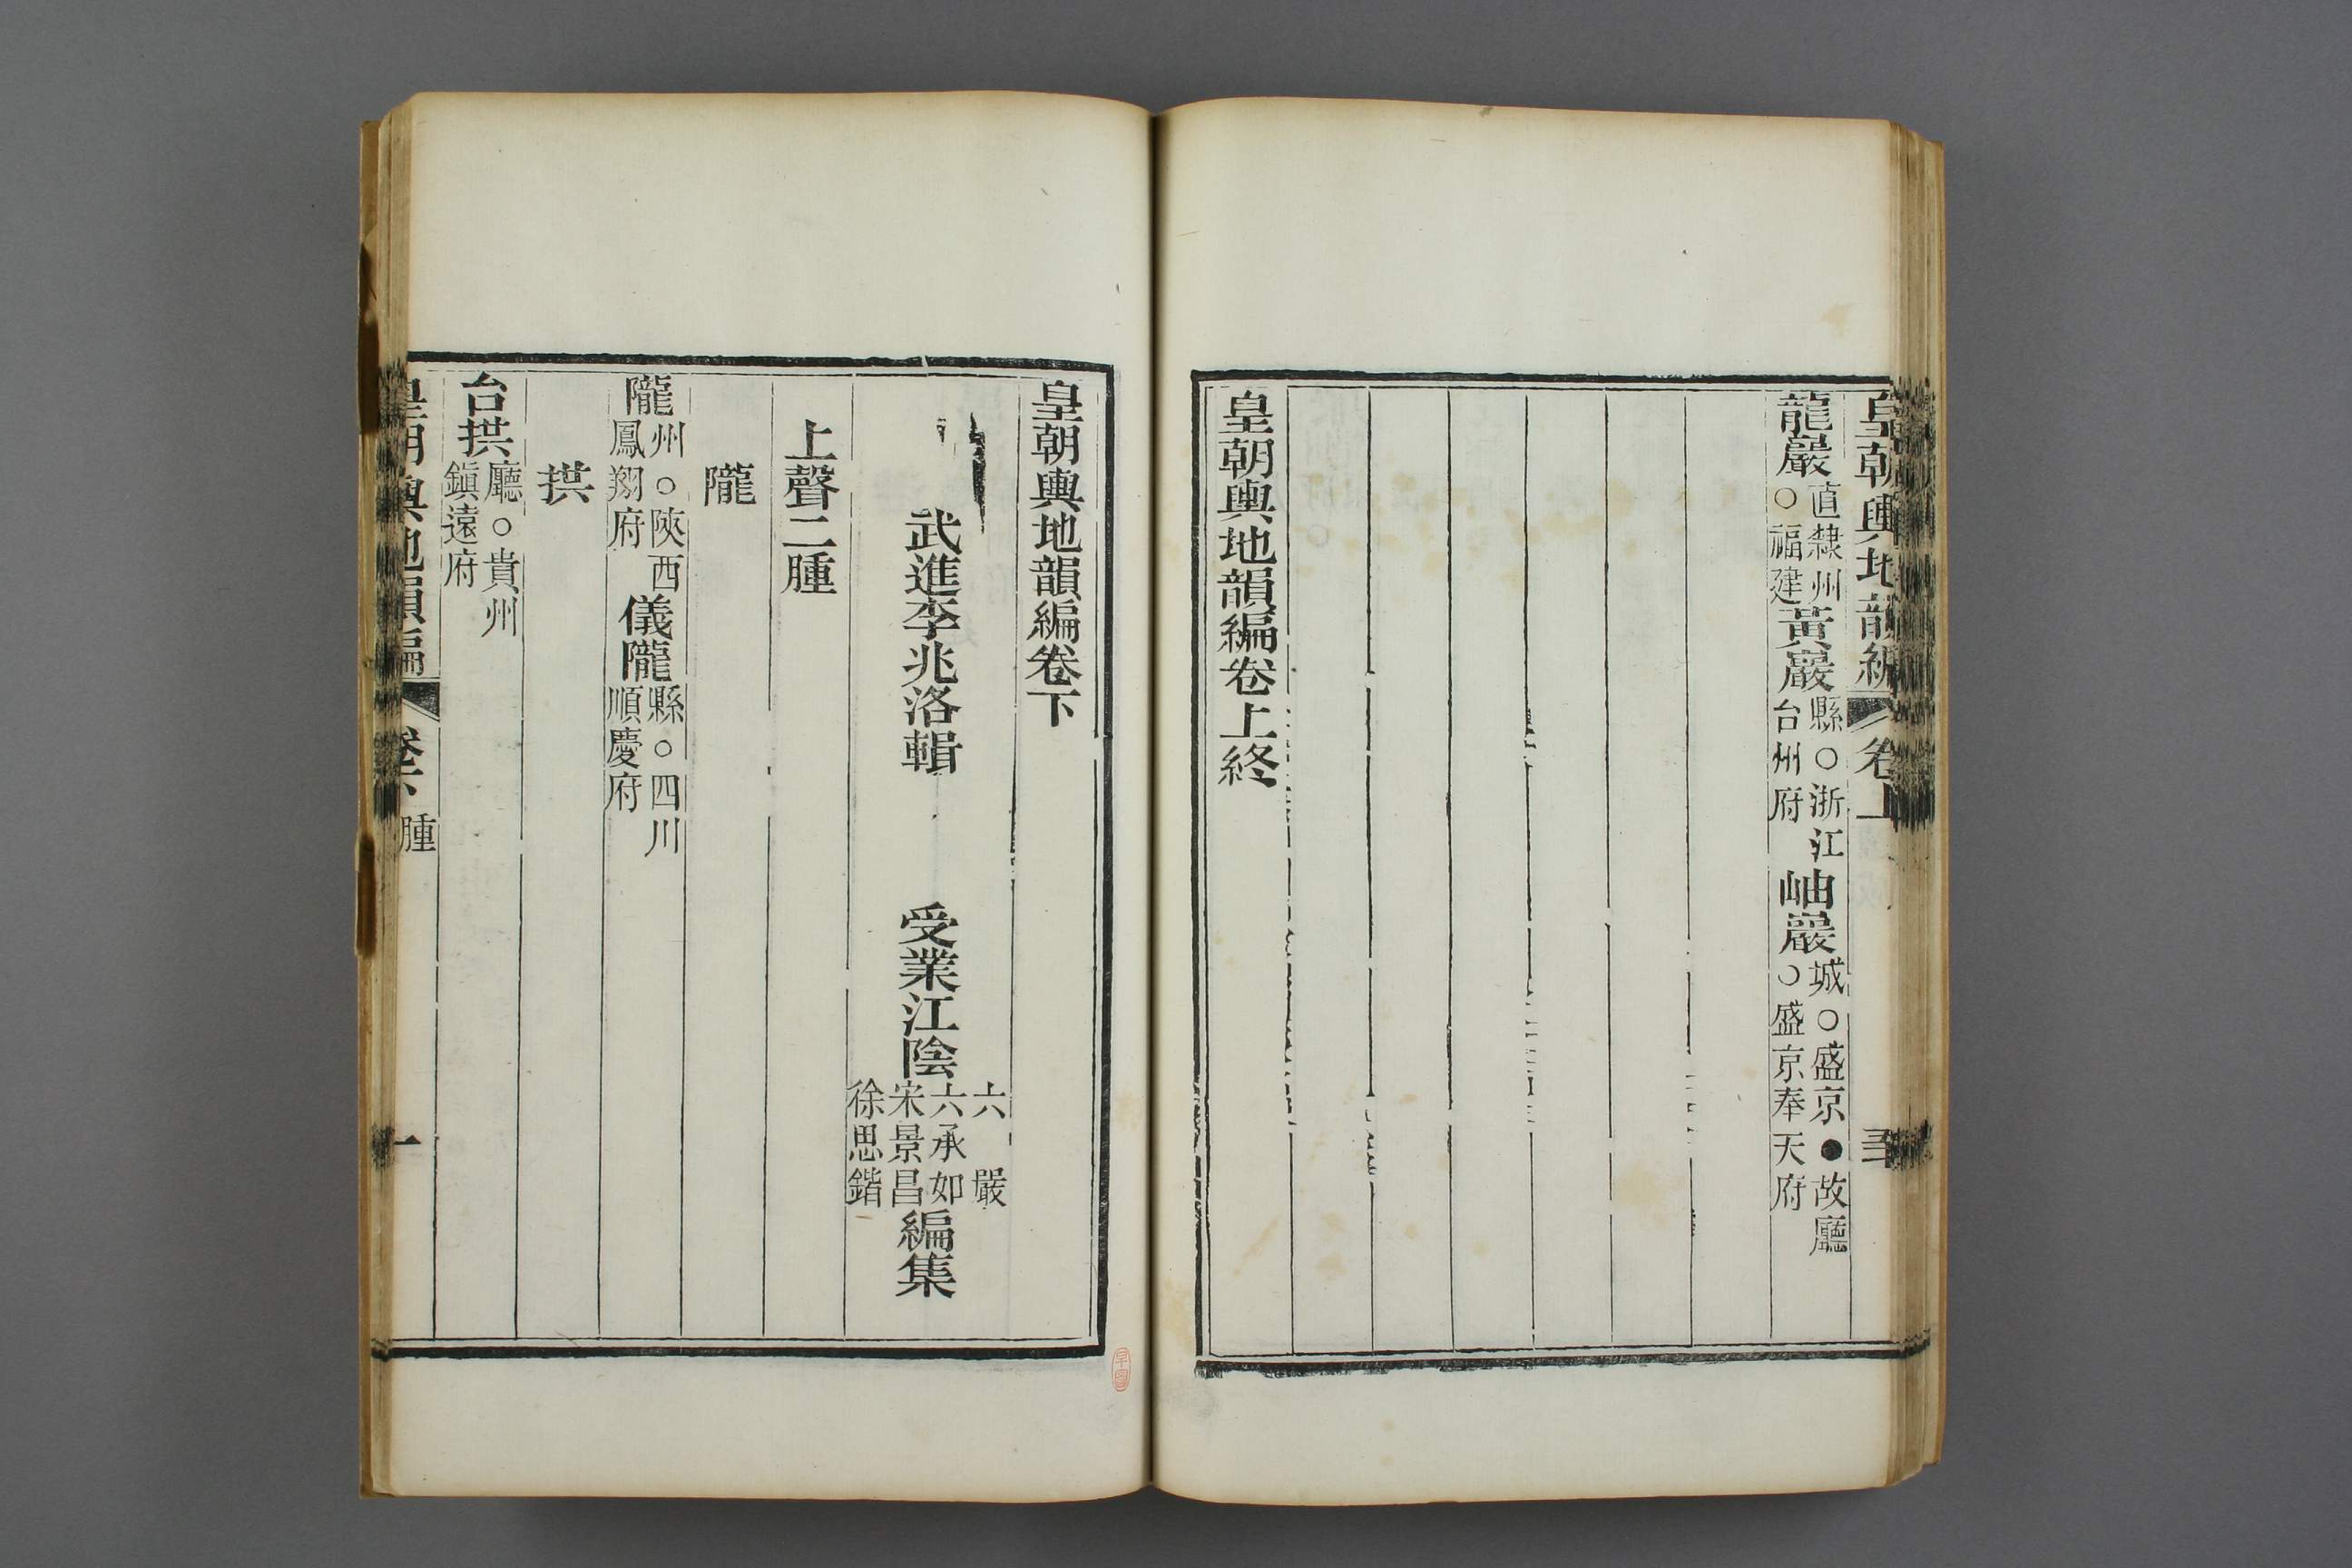 皇朝輿地韻編 卷上
龍巖直隸州○福建黃巖縣○浙江台州府岫巖城○盛京●故廳○盛京奉天府
皇朝輿地韻編卷上終
皇朝輿地韻編卷下
武進李兆洛輯 受業江陰六嚴六承如宋景昌徐思鍇編集
上聲二腫
隴
隴州○陝西鳳翔府儀隴縣○四川順慶府
拱
台拱廳○貴州鎮遠府
皇朝輿地韻編 卷下 腫 一